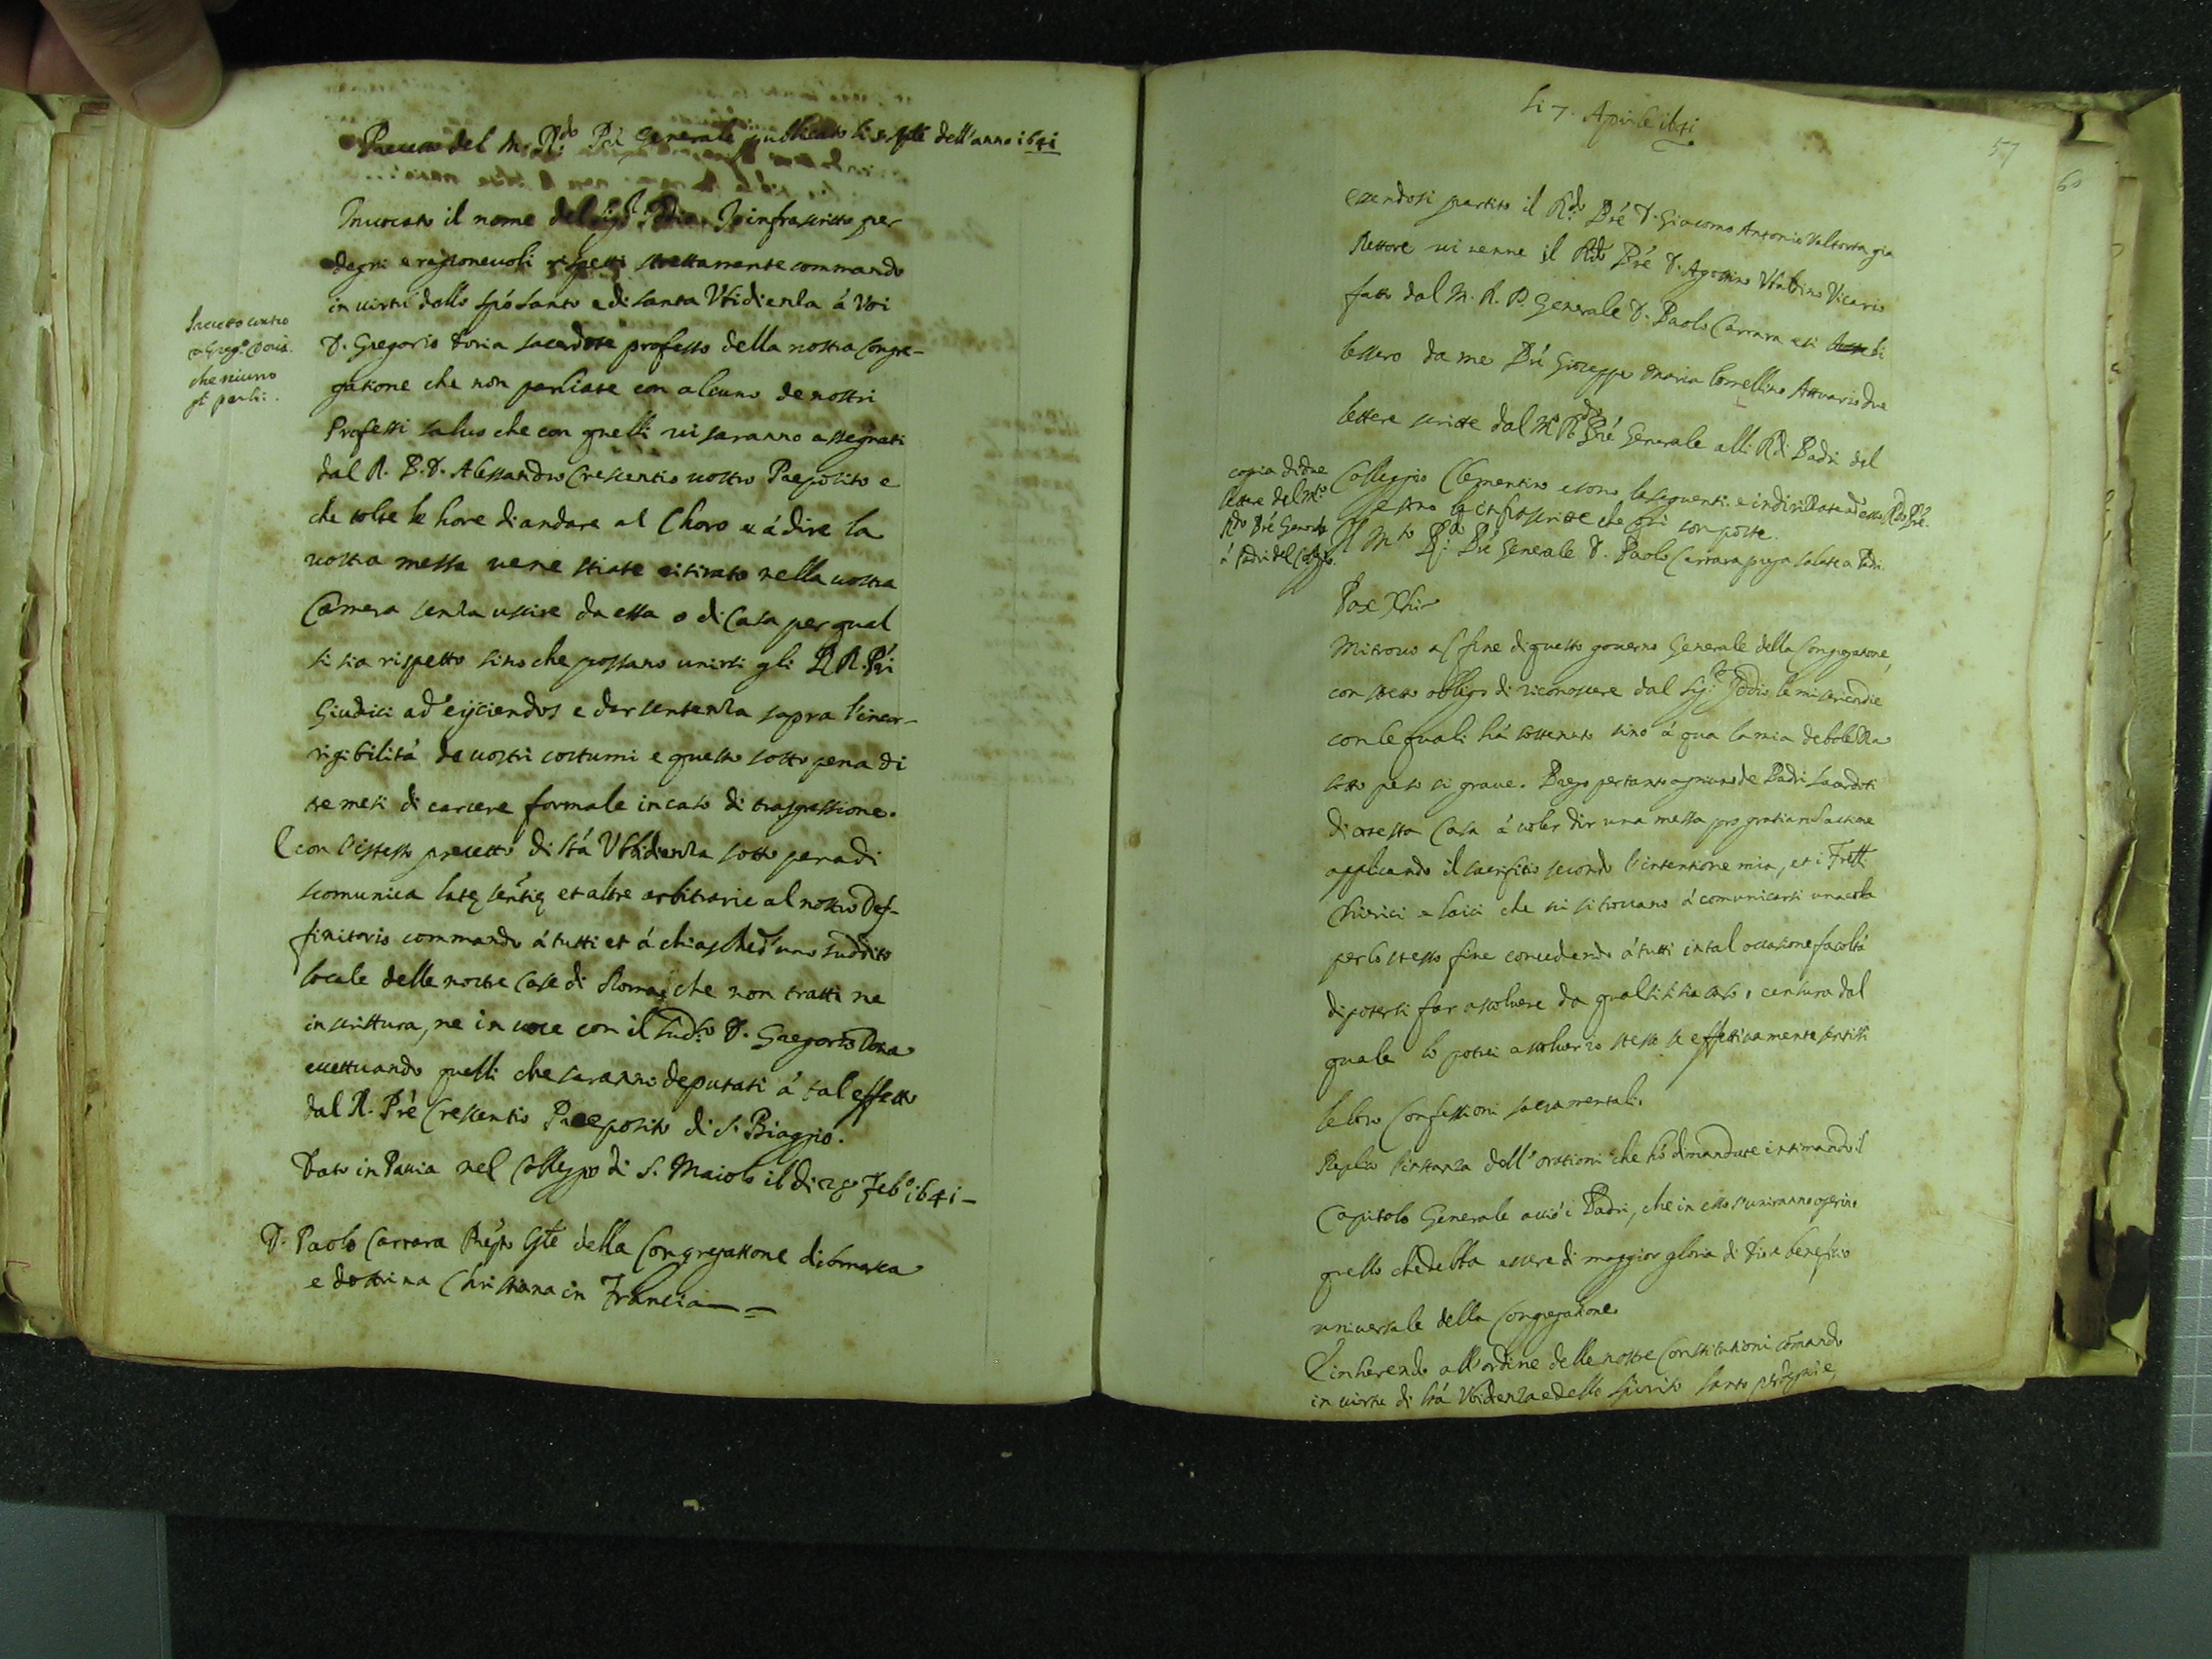 Precetto del M. R.do Pre Generale publicato li Aple dell'anno 1641
Invocato il nome del Sigr Iddio. Io infrascritto per
degni e ragionevoli rispetti strettamente commando
in virtù dello Spo santo e di santa Vbidienza á Voi
Precetto contro
D. Greg.o Doria.
che niuno
gli parli.
D. Gregorio Doria sacerdote professo della nostra Congre-
gatione che non parliate con alcuno de nostri
Professi salvo che con quelli vi saranno assegnati
dal R. P. D. Alessandro Crescentio vostro Preposito e
che tolte le hore di andare al Choro e á dire la
vostra messa vene stiate ritirato nella vostra
Camera senza uscire da essa o di Casa per qual
si sia rispetto sino che possano unirsi gli RR. Pri
Giudici ad eijciendos e dar sentenza sopra l'incor-
rigibilitá de vostri costumi e questo sotto pena di
tre mesi di carcere formale in caso di trasgressione.
E con l'istesso precetto di Sta Vbbidienza sotto pena di
scomunica latę sentię et altre arbitrarie al nostro Def-
finitorio commando á tutti et á chiaschedúno suddito
locale delle nostre Case di Roma che non tratti ne
in scrittura, ne in voce con il sud.to D. Gregorio Doria
eccettuando quelli che saranno deputati á tal effetto
dal R. Pre Crescentio Preposito di S. Biaggio.
Dato in Pavia nel Colleggio di S. Maiolo il di 28 Feb.o 1641 -
D. Paolo Carrara Prepto Gle della Congregatione di Somasca
e dottrina Christiana in Francia
Li 7. Aprile 1641
57
60
essendosi partito il R.do Pre D. Giacomo Antonio Valtorta gia
Rettore vi venne il R.do Pre D. Agostino Vbaldino Vicario
fatto dal M. R. P. Generale D. Paolo Carrara e si
lessero da me Pre Gioseppe Maria Lomellino Attuario due
lettere scritte dal M. R.do Pre Generale alli R.di Padri del
copia di due
lettere del M.to
R.do Pre Generale
á Padri del Colleg.o
Colleggio Clementino e sono le seguenti. e indirizzate ad esso R.do Pre.
e sono le infrascritte che cosi son poste
Il M.to R.do Pre Generale D. Paolo Carrara prega salute a Padri.
Pax Xpi
Mi trovo al fine di questo governo Generale della Congregatione,
con stretto obligo di riconoscere dal Sig.r Iddio le misericordie
con le quali há sostenuto sino á qua la mia debolezza
sotto peso si grave. Prego pertanto ogniuno de Padri Sacerdoti
di cotesta Casa á voler dir una messa pro gratiarum actione
applicando il sacrifitio secondo l'intentione mia, et i Frelli
Chierici e laici che vi si trovano á comunicarsi una volta
per lo stesso fine concedendo á tutti in tal occasione facoltá
di potersi far assolvere da qualsisia caso, o censura dal
quale lo potrei assolver io stesso se effettivamente sentissi
le loro Confessioni sacramentali.
Replico l'instanza dell'orationi che hó dimandate intimando il
Capitolo Generale acció i Padri, che in esso s'uniranno operino
quello che debba essere di maggior gloria di Dio e beneficio
universale della Congregatione.
E inherendo all'ordine delle nostre Constitutioni comando
in virtu di Sta Vbidienza e dello Spirito Santo per degni e,